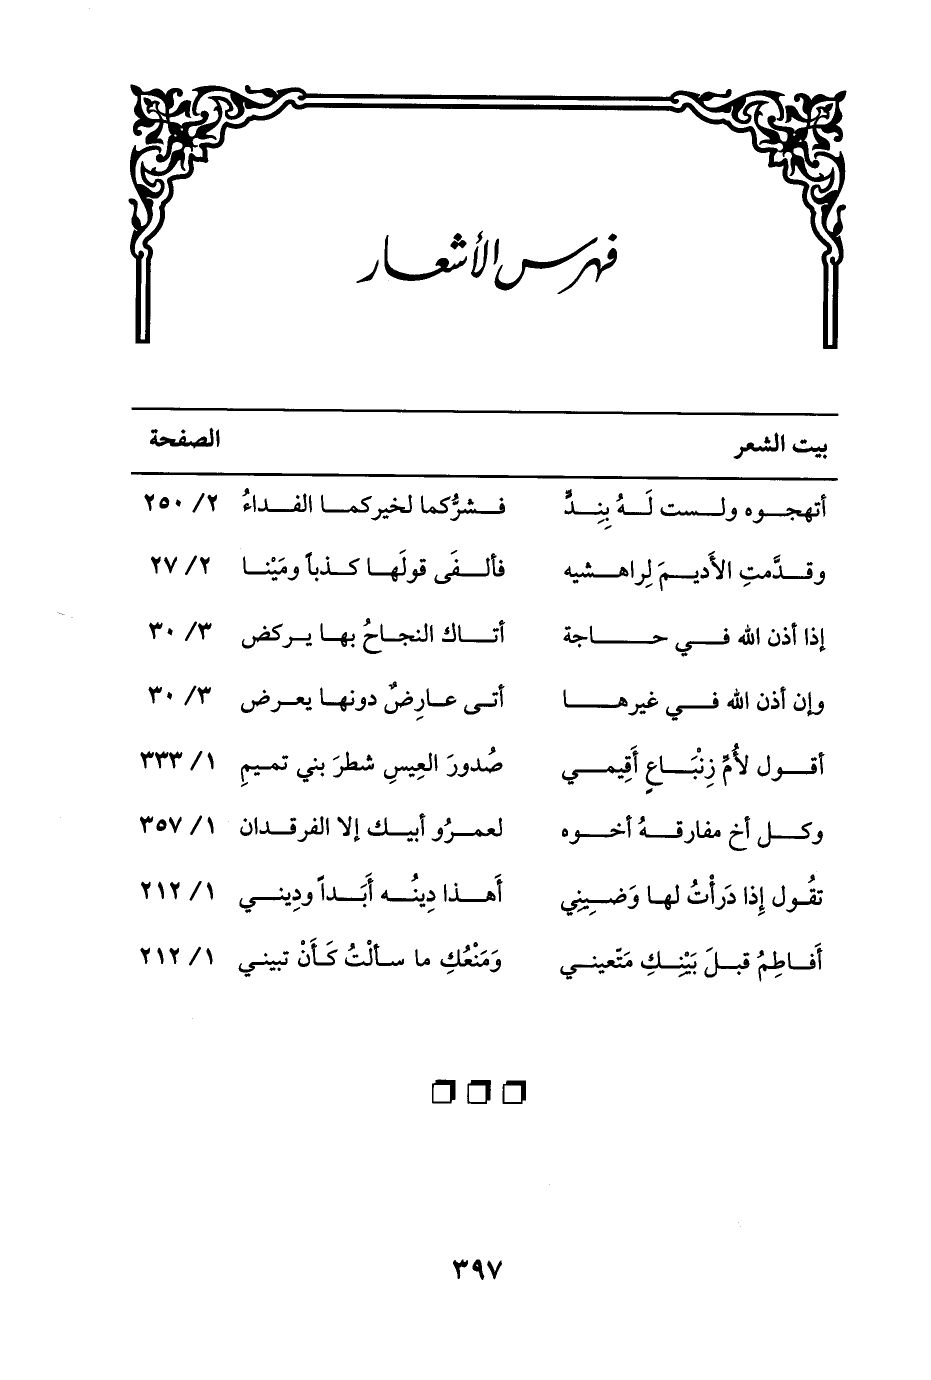 فهرس الأشعار
بيت الشعر الصفحة
أتهجوه ولست لَهُ بِنِدٍّ فشرُّكما لخيركما الفداءُ ٢/ ٢٥٠
وقدَّمتِ الأديمَ لِراهشيه فألفَى قولَها كذباً ومَيْنا ٢/ ٢٧
إذا أذن الله في حاجة أتاك النجاحُ بها يركض ٣/ ٣٠
وإن أذن الله في غيرها أتى عارِضٌ دونها يعرض ٣/ ٣٠
أقول لأُمِّ زِنْبَاعٍ أَقِيمي صُدورَ العِيسِ شطرَ بني تميمِ ١/ ٣٣٣
وكل أخ مفارقهُ أخوه لعمرُو أبيك إلا الفرقدان ١/ ٣٥٧
تقُول إِذا دَرَأْتُ لها وَضِينِي أَهذا دِينُه أَبَداً ودِيني ١/ ٢١٢
أَفاطِمُ قبلَ بَيْنِكِ مَتّعيني وَمَنْعُكِ ما سألْتُ كَأَنْ تبيني ١/ ٢١٢
٣٩٧